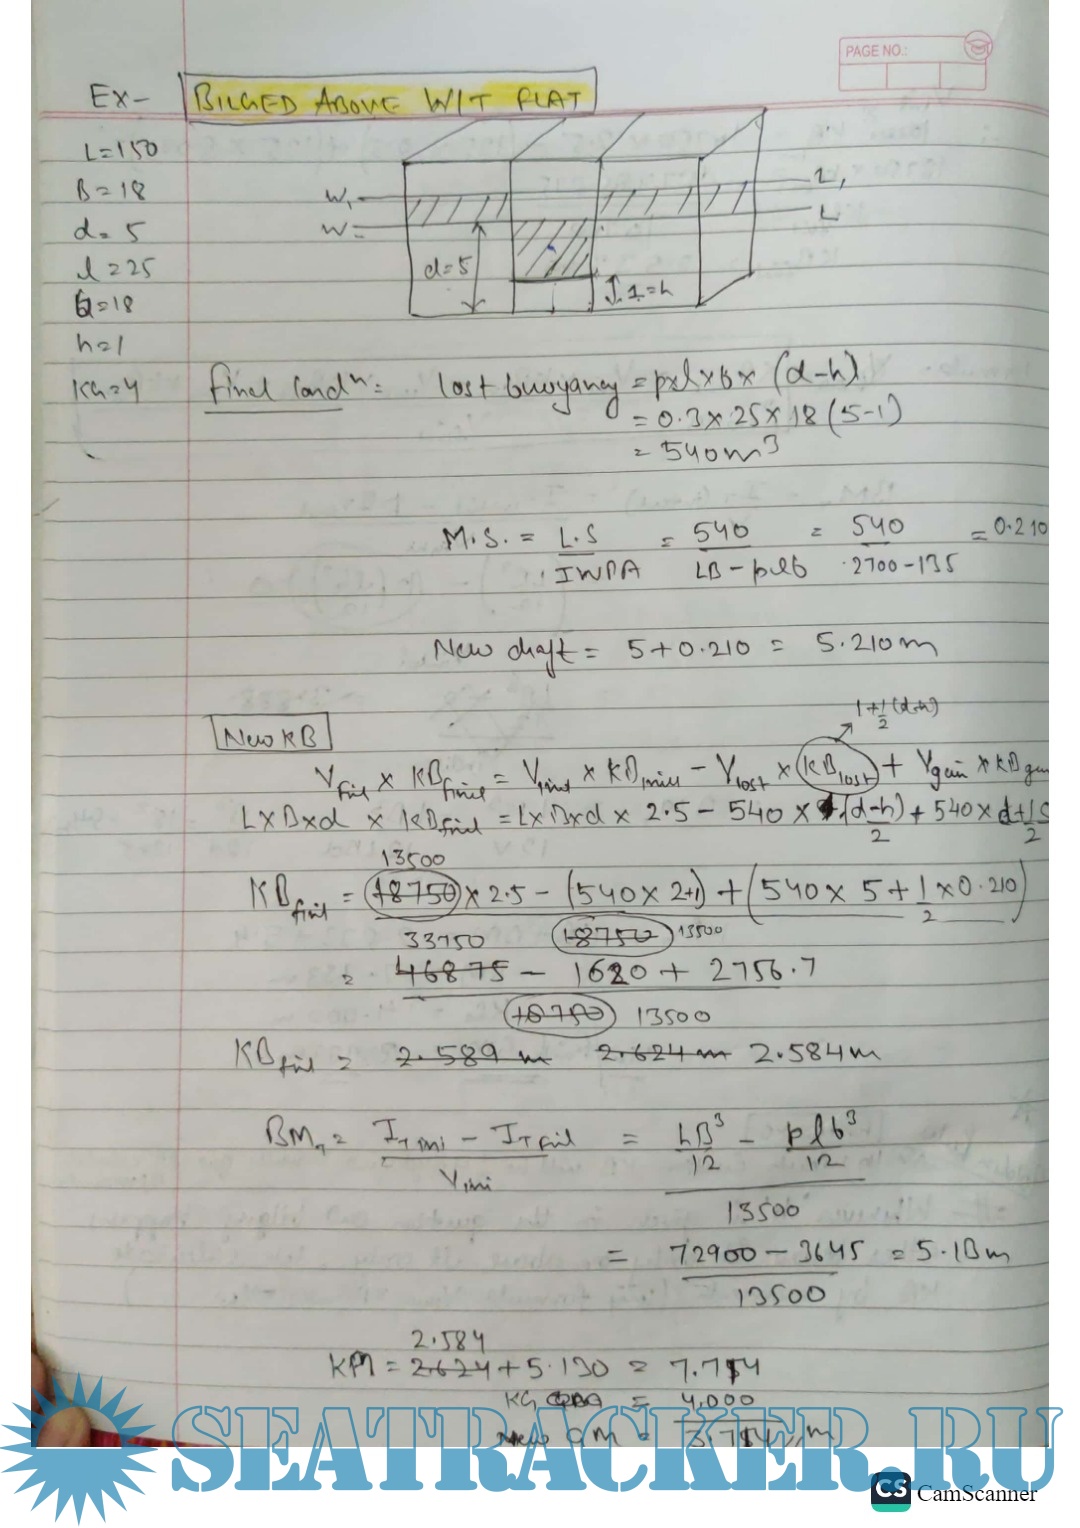 PAGE NO.:
Ex- BILGED ABOVE W/T FLAT
L=150
B=18
d=5
l=25
b=18
h=1
KG=4
W₁ L₁
W= L
d=5
1=h
Final Condⁿ: Lost buoyancy = p×l×b×(d-h)
= 0.3×25×18(5-1)
= 540m³
M.S. = L.S / IWPA = 540 / LB-plb = 540 / 2700-135 = 0.210
New draft = 5+0.210 = 5.210m
New KB
1+1/2(d-h)
V final × KB final = V init × KB init - V lost × (KB lost) + V gain × KB gain
L×B×d × KB final = L×B×d × 2.5 - 540 × (d-h)/2 + 540 × d+1S/2
13500
KB final = 18750 × 2.5 - (540×2+1) + (540×5+1/2×0.210)
33750 18750 13500
= 46875 - 1620 + 2756.7
18750 13500
KB final = 2.589 m 2.624 m 2.584m
BMT = IT ini - IT final / V ini = LB³/12 - plb³/12
13500
= 72900-3645 / 13500 = 5.13m
2.584
KM = 2.624 + 5.130 = 7.714
KG = 4.000
New GM = 3.714 m
SEATRACKER.RU
CS CamScanner